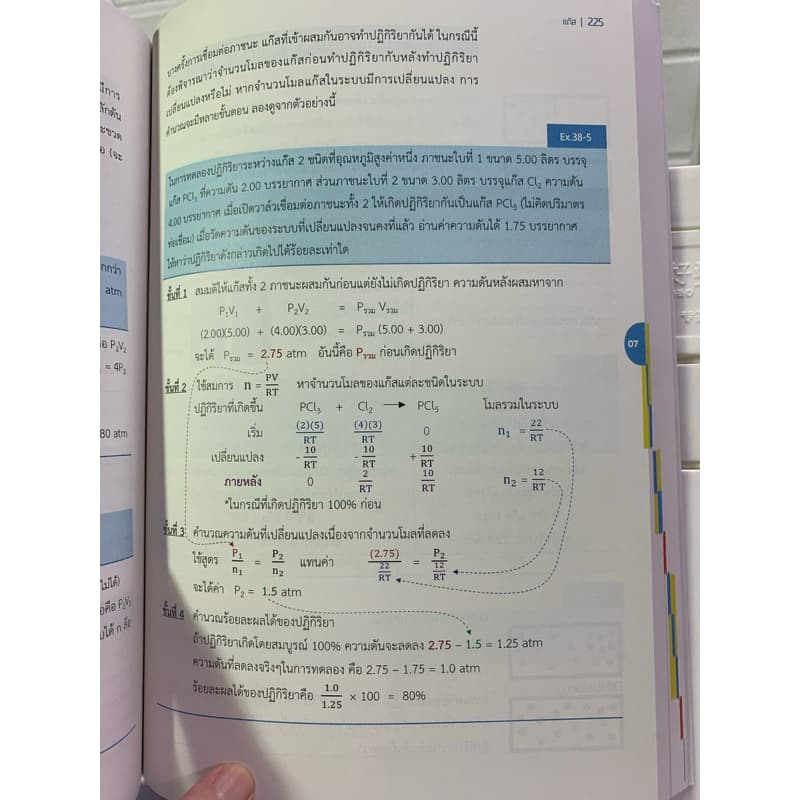 แก๊ส | 225
บางครั้งการเชื่อมต่อภาชนะ แก๊สที่เข้าผสมกันอาจทำปฏิกิริยากันได้ ในกรณีนี้
ต้องพิจารณาว่าจำนวนโมลของแก๊สก่อนทำปฏิกิริยากับหลังทำปฏิกิริยา
เปลี่ยนแปลงหรือไม่ หากจำนวนโมลแก๊สในระบบมีการเปลี่ยนแปลง การ
คำนวณจะมีหลายขั้นตอน ลองดูจากตัวอย่างนี้
Ex.38-5
ในการทดลองปฏิกิริยาระหว่างแก๊ส 2 ชนิดที่อุณหภูมิสูงค่าหนึ่ง ภาชนะใบที่ 1 ขนาด 5.00 ลิตร บรรจุ
แก๊ส PCl₃ ที่ความดัน 2.00 บรรยากาศ ส่วนภาชนะใบที่ 2 ขนาด 3.00 ลิตร บรรจุแก๊ส Cl₂ ความดัน
4.00 บรรยากาศ เมื่อเปิดวาล์วเชื่อมต่อภาชนะทั้ง 2 ให้เกิดปฏิกิริยากันเป็นแก๊ส PCl₅ (ไม่คิดปริมาตร
ท่อเชื่อม) เมื่อวัดความดันของระบบที่เปลี่ยนแปลงจนคงที่แล้ว อ่านค่าความดันได้ 1.75 บรรยากาศ
ให้หาว่าปฏิกิริยาดังกล่าวเกิดไปได้ร้อยละเท่าใด
ขั้นที่ 1 สมมติให้แก๊สทั้ง 2 ภาชนะผสมกันก่อนแต่ยังไม่เกิดปฏิกิริยา ความดันหลังผสมหาจาก
P₁V₁ + P₂V₂ = Pรวม Vรวม
(2.00)(5.00) + (4.00)(3.00) = Pรวม (5.00 + 3.00)
จะได้ Pรวม = 2.75 atm อันนี้คือ Pรวม ก่อนเกิดปฏิกิริยา
ขั้นที่ 2 ใช้สมการ n = PV/RT หาจำนวนโมลของแก๊สแต่ละชนิดในระบบ
ปฏิกิริยาที่เกิดขึ้น PCl₃ + Cl₂ → PCl₅ โมลรวมในระบบ
เริ่ม (2)(5)/RT (4)(3)/RT 0 n₁ = 22/RT
เปลี่ยนแปลง - 10/RT - 10/RT + 10/RT
ภายหลัง 0 2/RT 10/RT n₂ = 12/RT
*ในกรณีที่เกิดปฏิกิริยา 100% ก่อน
ขั้นที่ 3 คำนวณความดันที่เปลี่ยนแปลงเนื่องจากจำนวนโมลที่ลดลง
ใช้สูตร P₁/n₁ = P₂/n₂ แทนค่า (2.75)/(22/RT) = P₂/(12/RT)
จะได้ค่า P₂ = 1.5 atm
ขั้นที่ 4 คำนวณร้อยละผลได้ของปฏิกิริยา
ถ้าปฏิกิริยาเกิดโดยสมบูรณ์ 100% ความดันจะลดลง 2.75 – 1.5 = 1.25 atm
ความดันที่ลดลงจริงๆในการทดลอง คือ 2.75 – 1.75 = 1.0 atm
ร้อยละผลได้ของปฏิกิริยาคือ 1.0/1.25 × 100 = 80%
07
มีการ
กกว่า
atm
P₂V₂
= 4P₂
80 atm
ไม่ได้)